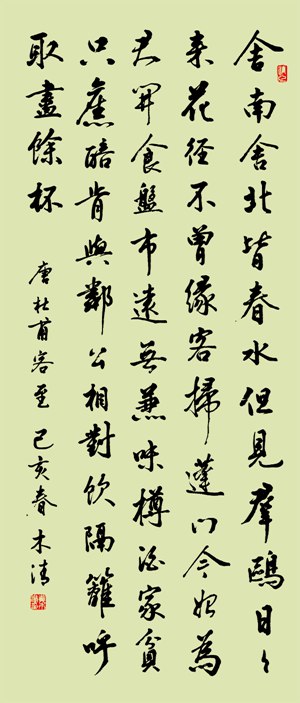 舍南舍北皆春水但見羣鷗日々
来花径不曾緣客掃蓬门今始為
君開食盤市遠無兼味樽酒家貧
只舊醅肯與鄰公相對飲隔籬呼
取盡餘杯
唐杜甫客至 己亥春木清